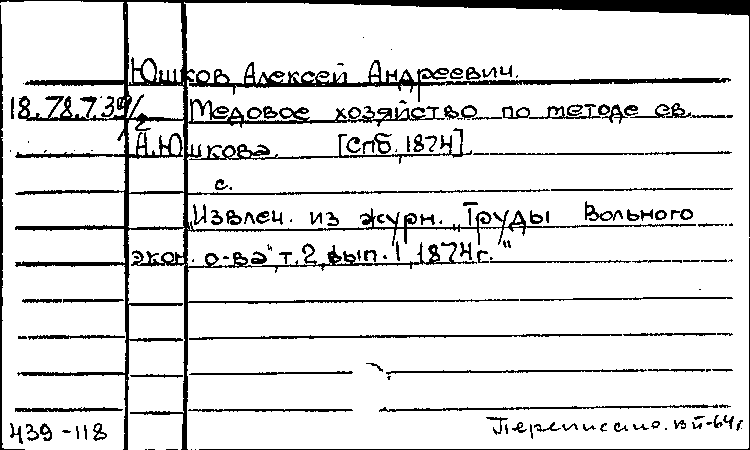 Юшков, Алексей Андреевич.
18.78.7.39/2 Медовое хозяйство по методе св.
А.Юшкова. [Спб, 1874].
с.
"Извлеч. из журн. „Труды Вольного
экон. о-ва" т.2, вып.1, 1874г."
439-118 Переписано.